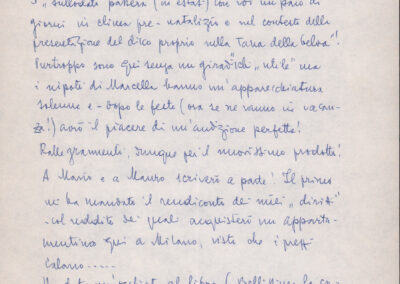 "sullodato passerà (in estasi) con voi un paio di
giorni in clima pre-natalizio e nel contesto della
presentazione del disco proprio nella Tana della belva"!
Purtroppo sono qui senza un giradisch "utile" ma
i nipoti di Marcella hanno un'apparecchiatura
solenne e - dopo le feste (ora se ne vanno in vacan-
za!) avrò il piacere di un'audizione perfetta!
Rallegramenti, dunque per il nuovissimo prodotto!
A Mario e a Mauro scriverò a parte! Il primo
mi ha mandato il rendiconto dei miei "diritti"
- col reddito dei quali acquisterò un apparta-
mentino qui a Milano, visto che i prezzi
calano.....
un'occhiata al libro